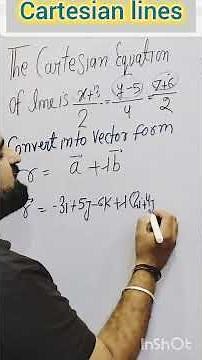 Cartesian lines
The Cartesian Equation
of line is x+3/2 = (y-5)/4 = z+6/2
Convert into vector form
r⃗ = a⃗ + λb⃗
r⃗ = -3i+5j-6k+λ(2i+4j
InShot